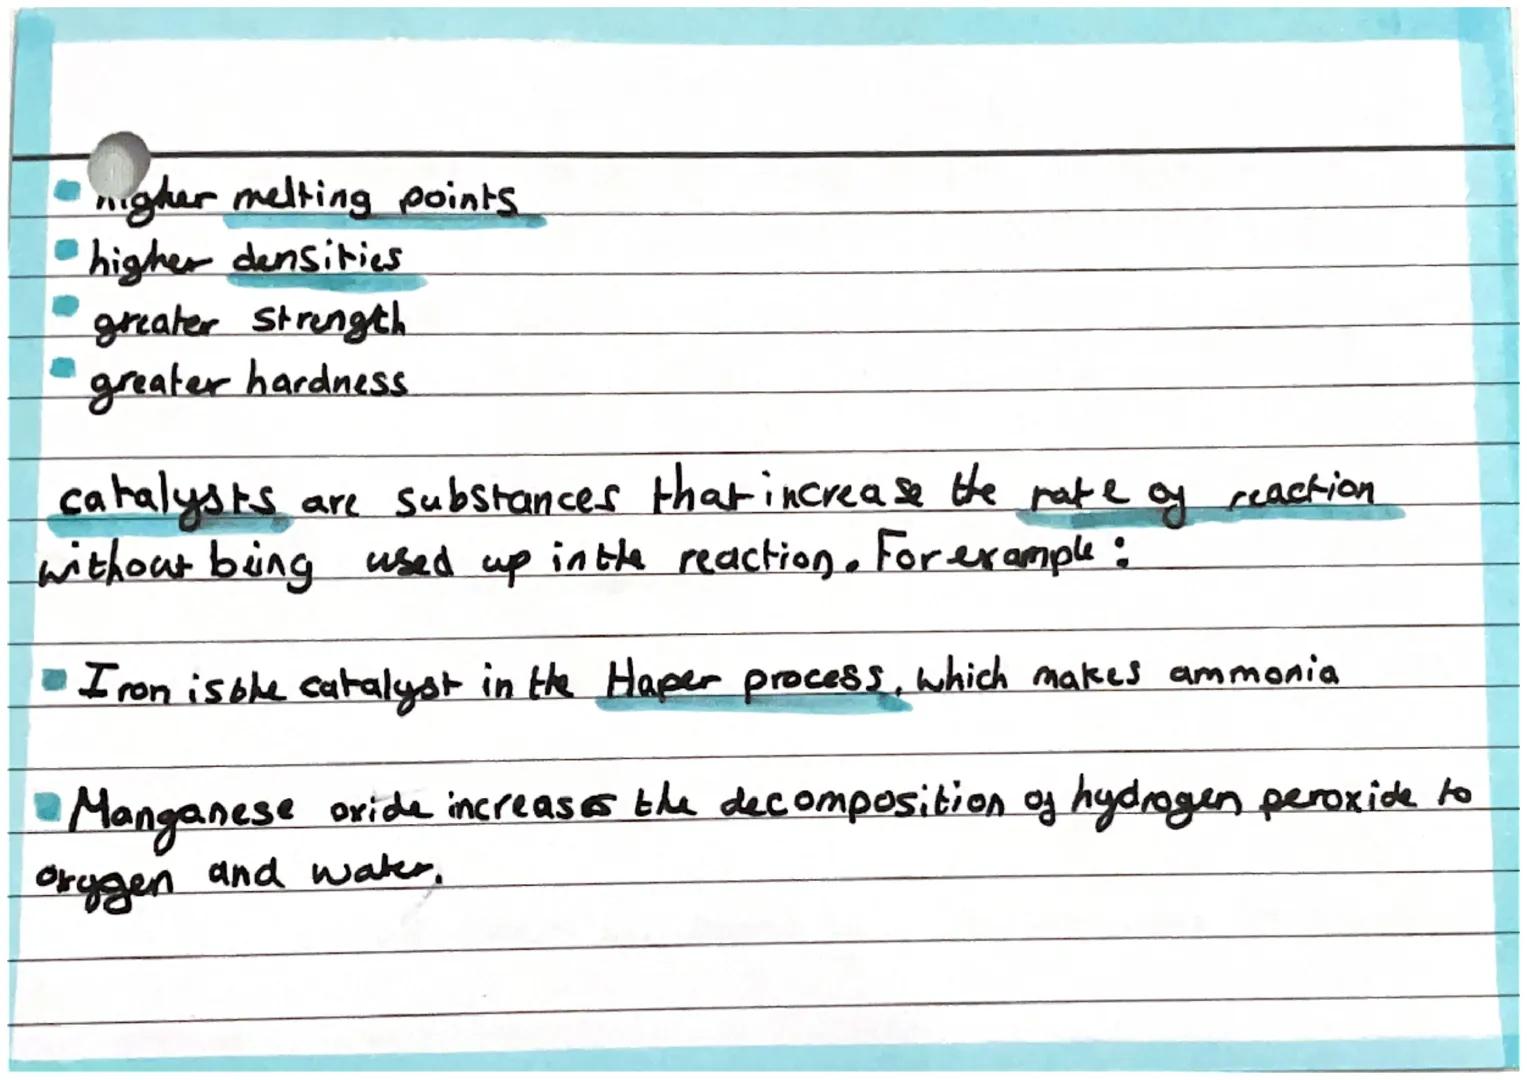 higher melting points
higher densities
greater strength
greater hardness
catalysts are substances that increase the rate of reaction
without being used up in the reaction. For example:
Iron is the catalyst in the Haper process, which makes ammonia
Manganese oxide increases the decomposition of hydrogen peroxide to
oxygen and water.